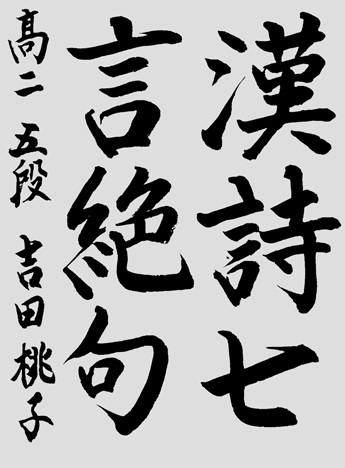 漢詩七
言絶句
高二 五段 吉田桃子